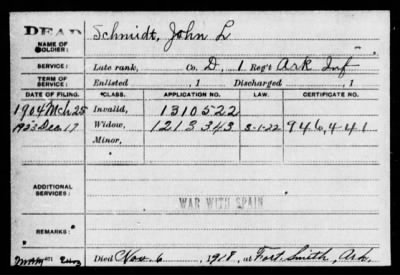 DEAD
NAME OF SOLDIER: Schmidt, John L
SERVICE: Late rank, Co. D, 1 Reg't Ark Inf
TERM OF SERVICE: Enlisted , 1 Discharged , 1
DATE OF FILING. *CLASS. APPLICATION NO. LAW. CERTIFICATE NO.
1904 Mch 25 Invalid, 1310522
1923 Dec 17 Widow, 1213343 5-1-22 946,441
Minor,
ADDITIONAL SERVICES:
WAR WITH SPAIN
REMARKS:
Died Nov. 6, 1918, at Fort Smith, Ark.